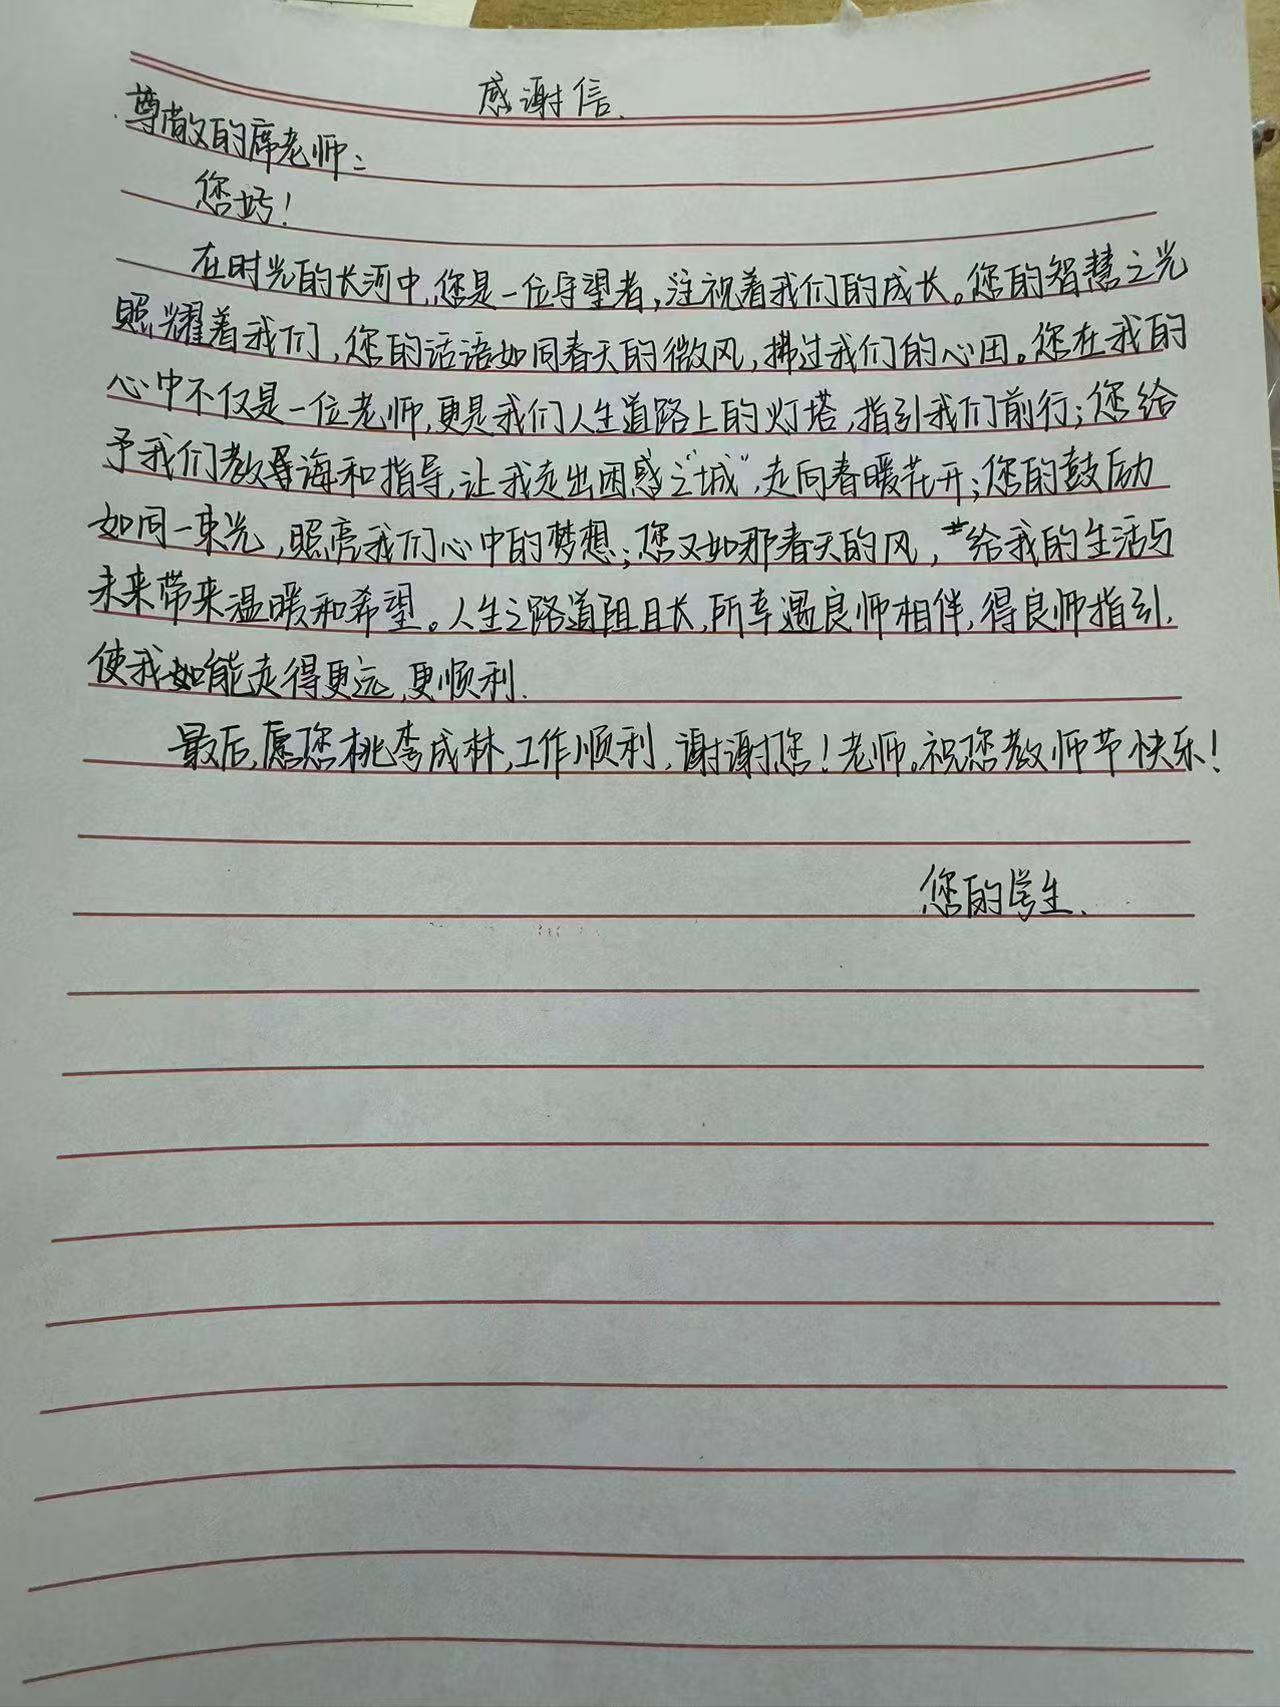 感谢信.
尊敬的席老师：
您好！
在时光的长河中,您是一位守望者,注视着我们的成长。您的智慧之光
照耀着我们,您的话语如同春天的微风,拂过我们的心田。您在我的
心中不仅是一位老师,更是我们人生道路上的灯塔,指引我们前行;您给
予我们教导诲和指导,让我走出困惑之"城",走向春暖花开;您的鼓励
如同一束光,照亮我们心中的梦想;您又如那春天的风,给我的生活与
未来带来温暖和希望。人生之路道阻且长,所幸遇良师相伴,得良师指引,
使我如能走得更远,更顺利.
最后,愿您桃李成林,工作顺利,谢谢您！老师。祝您教师节快乐！
您的学生.